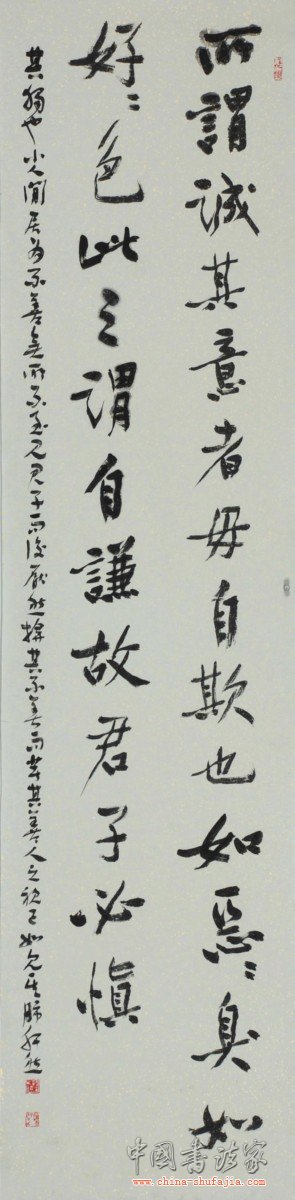 所謂誠其意者毋自欺也如惡〻臭如
好〻色此之謂自謙故君子必慎
其獨也小人閒居為不善無所不至見君子而後厭然揜其不善而著其善人之視己如見其肺肝然
中国书法家
www.china-shufajia.com